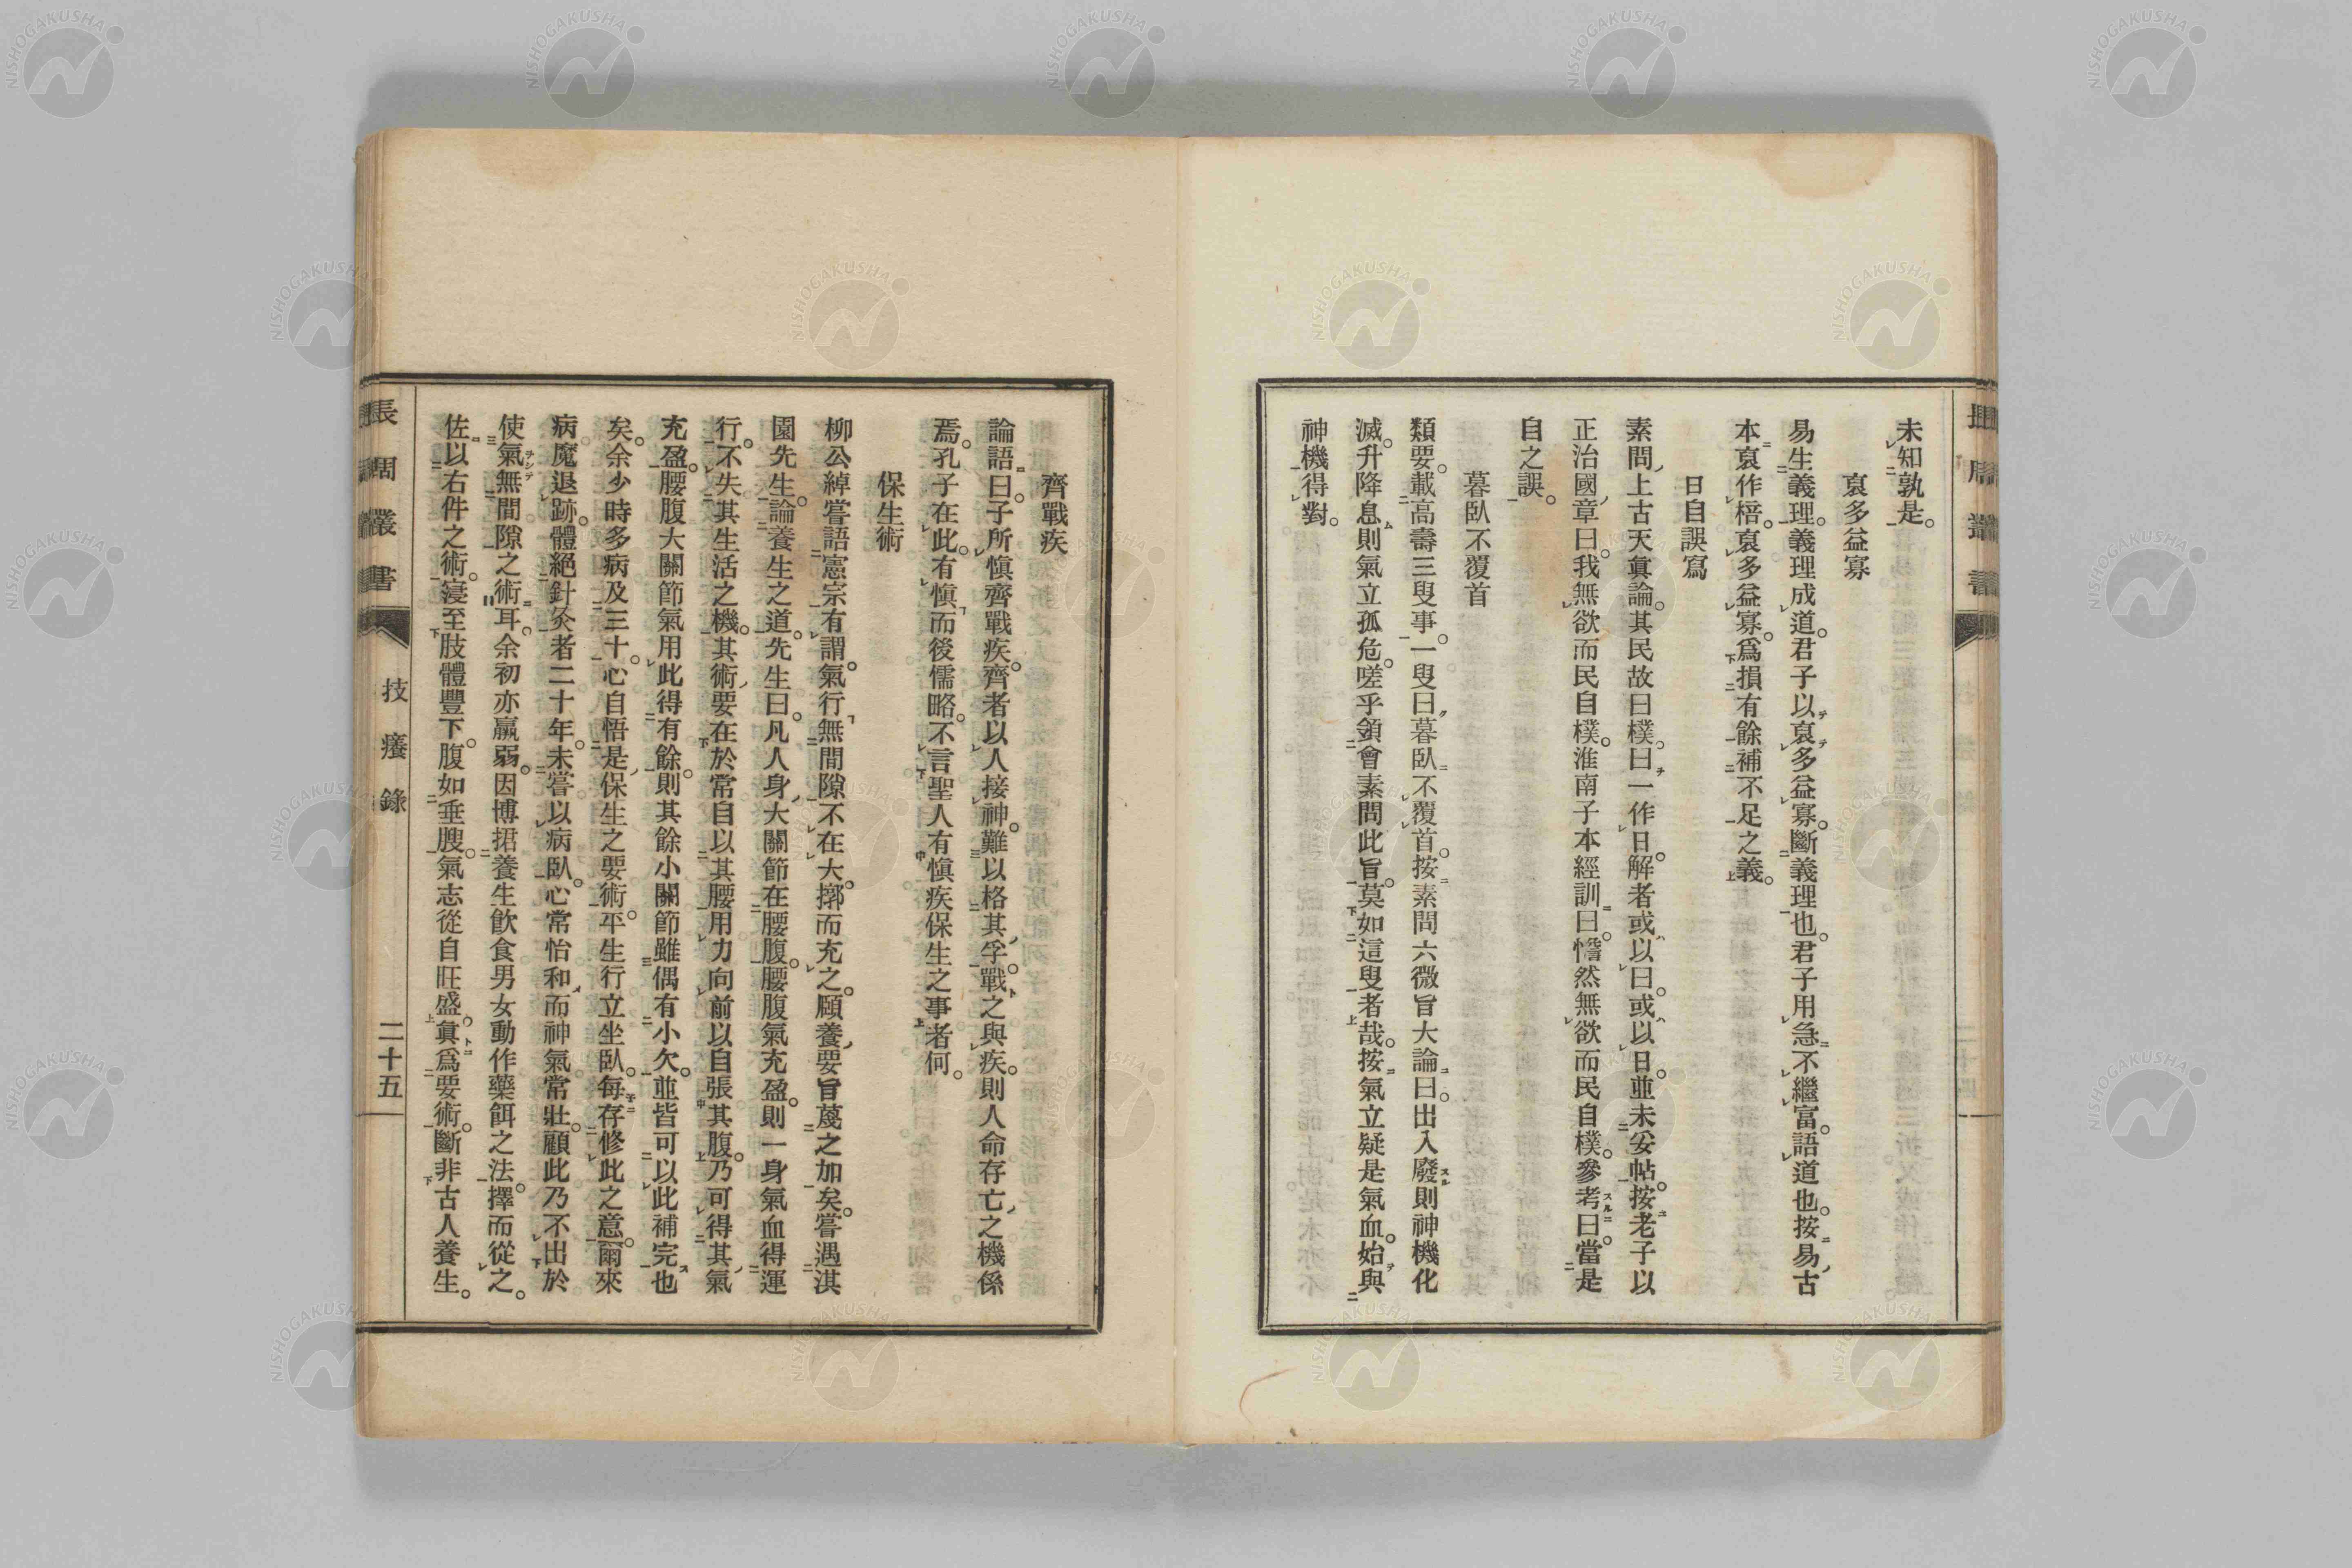 未知孰是。
裒多益寡
易生義理。義理成道。君子以裒多益寡。斷義理也。君子用急不繼富。語道也。按易古
本裒作棓。裒多益寡。爲損有餘補不足之義。
日自誤寫
素問上古天眞論。其民故曰樸。曰一作日。解者或以曰。或以日。並未妥帖。按老子以
正治國章曰。我無欲而民自樸。淮南子本經訓曰。憺然無欲而民自樸。參考曰。當是
自之誤。
暮臥不覆首
類要。載高壽三叟事。一叟曰暮臥不覆首。按素問六微旨大論曰。出入廢則神機化
滅。升降息則氣立孤危。嗟乎領會素問此旨。莫如這叟者哉。按氣立疑是氣血。始與
神機得對。
齊戰疾
論語曰。子所愼齊戰疾。齊者以人接神。難以格其孚。戰之與疾。則人命存亡之機係
焉。孔子在此。有愼而後儒略。不言聖人有愼疾保生之事者何。
保生術
柳公綽嘗語憲宗有謂。氣行無間隙不在大。擲而充之。頤養要旨蔑之加矣。嘗遇淇
園先生。論養生之道。先生曰。凡人身大關節在腰腹。腰腹氣充盈。則一身氣血得運
行。不失其生活之機。其術要在於常自以其腰用力向前以自張其腹。乃可得其氣
充盈。腰腹大關節氣用此得有餘。則其餘小關節雖偶有小欠。並皆可以此補完也
矣。余少時多病及三十。心自悟是保生之要術。平生行立坐臥。每存修此之意。爾來
病魔退跡。體絕針灸者二十年。未嘗以病臥。心常怡和而神氣常壯。顧此乃不出於
使氣無間隙之術耳。余初亦羸弱。因博捃養生飮食男女動作藥餌之法。擇而從之。
佐以右件之術。寖至肢體豐下。腹如垂膄。氣志從自旺盛。眞爲要術。斷非古人養生。
長周叢書
技癢錄
二十五
NISHOGAKUSHA